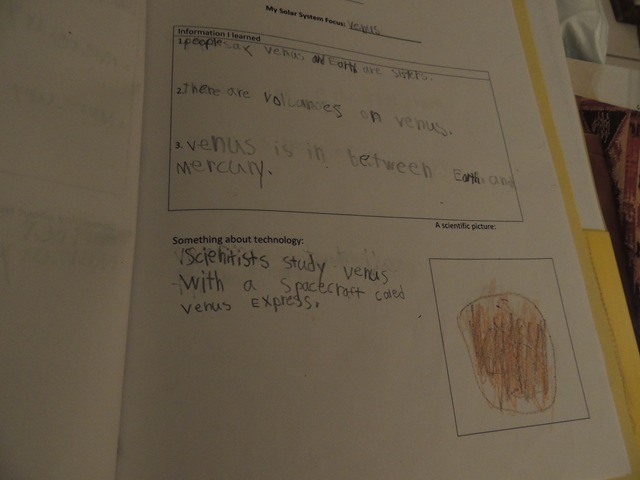 My Solar System Focus: Venus
Information I learned
1. people say Venus and Earth are sisters.
2. There are volcanoes on venus.
3. venus is in between Earth and
Mercury.
A scientific picture:
Something about technology:
Scientists study venus
with a spacecraft caled
venus Express.